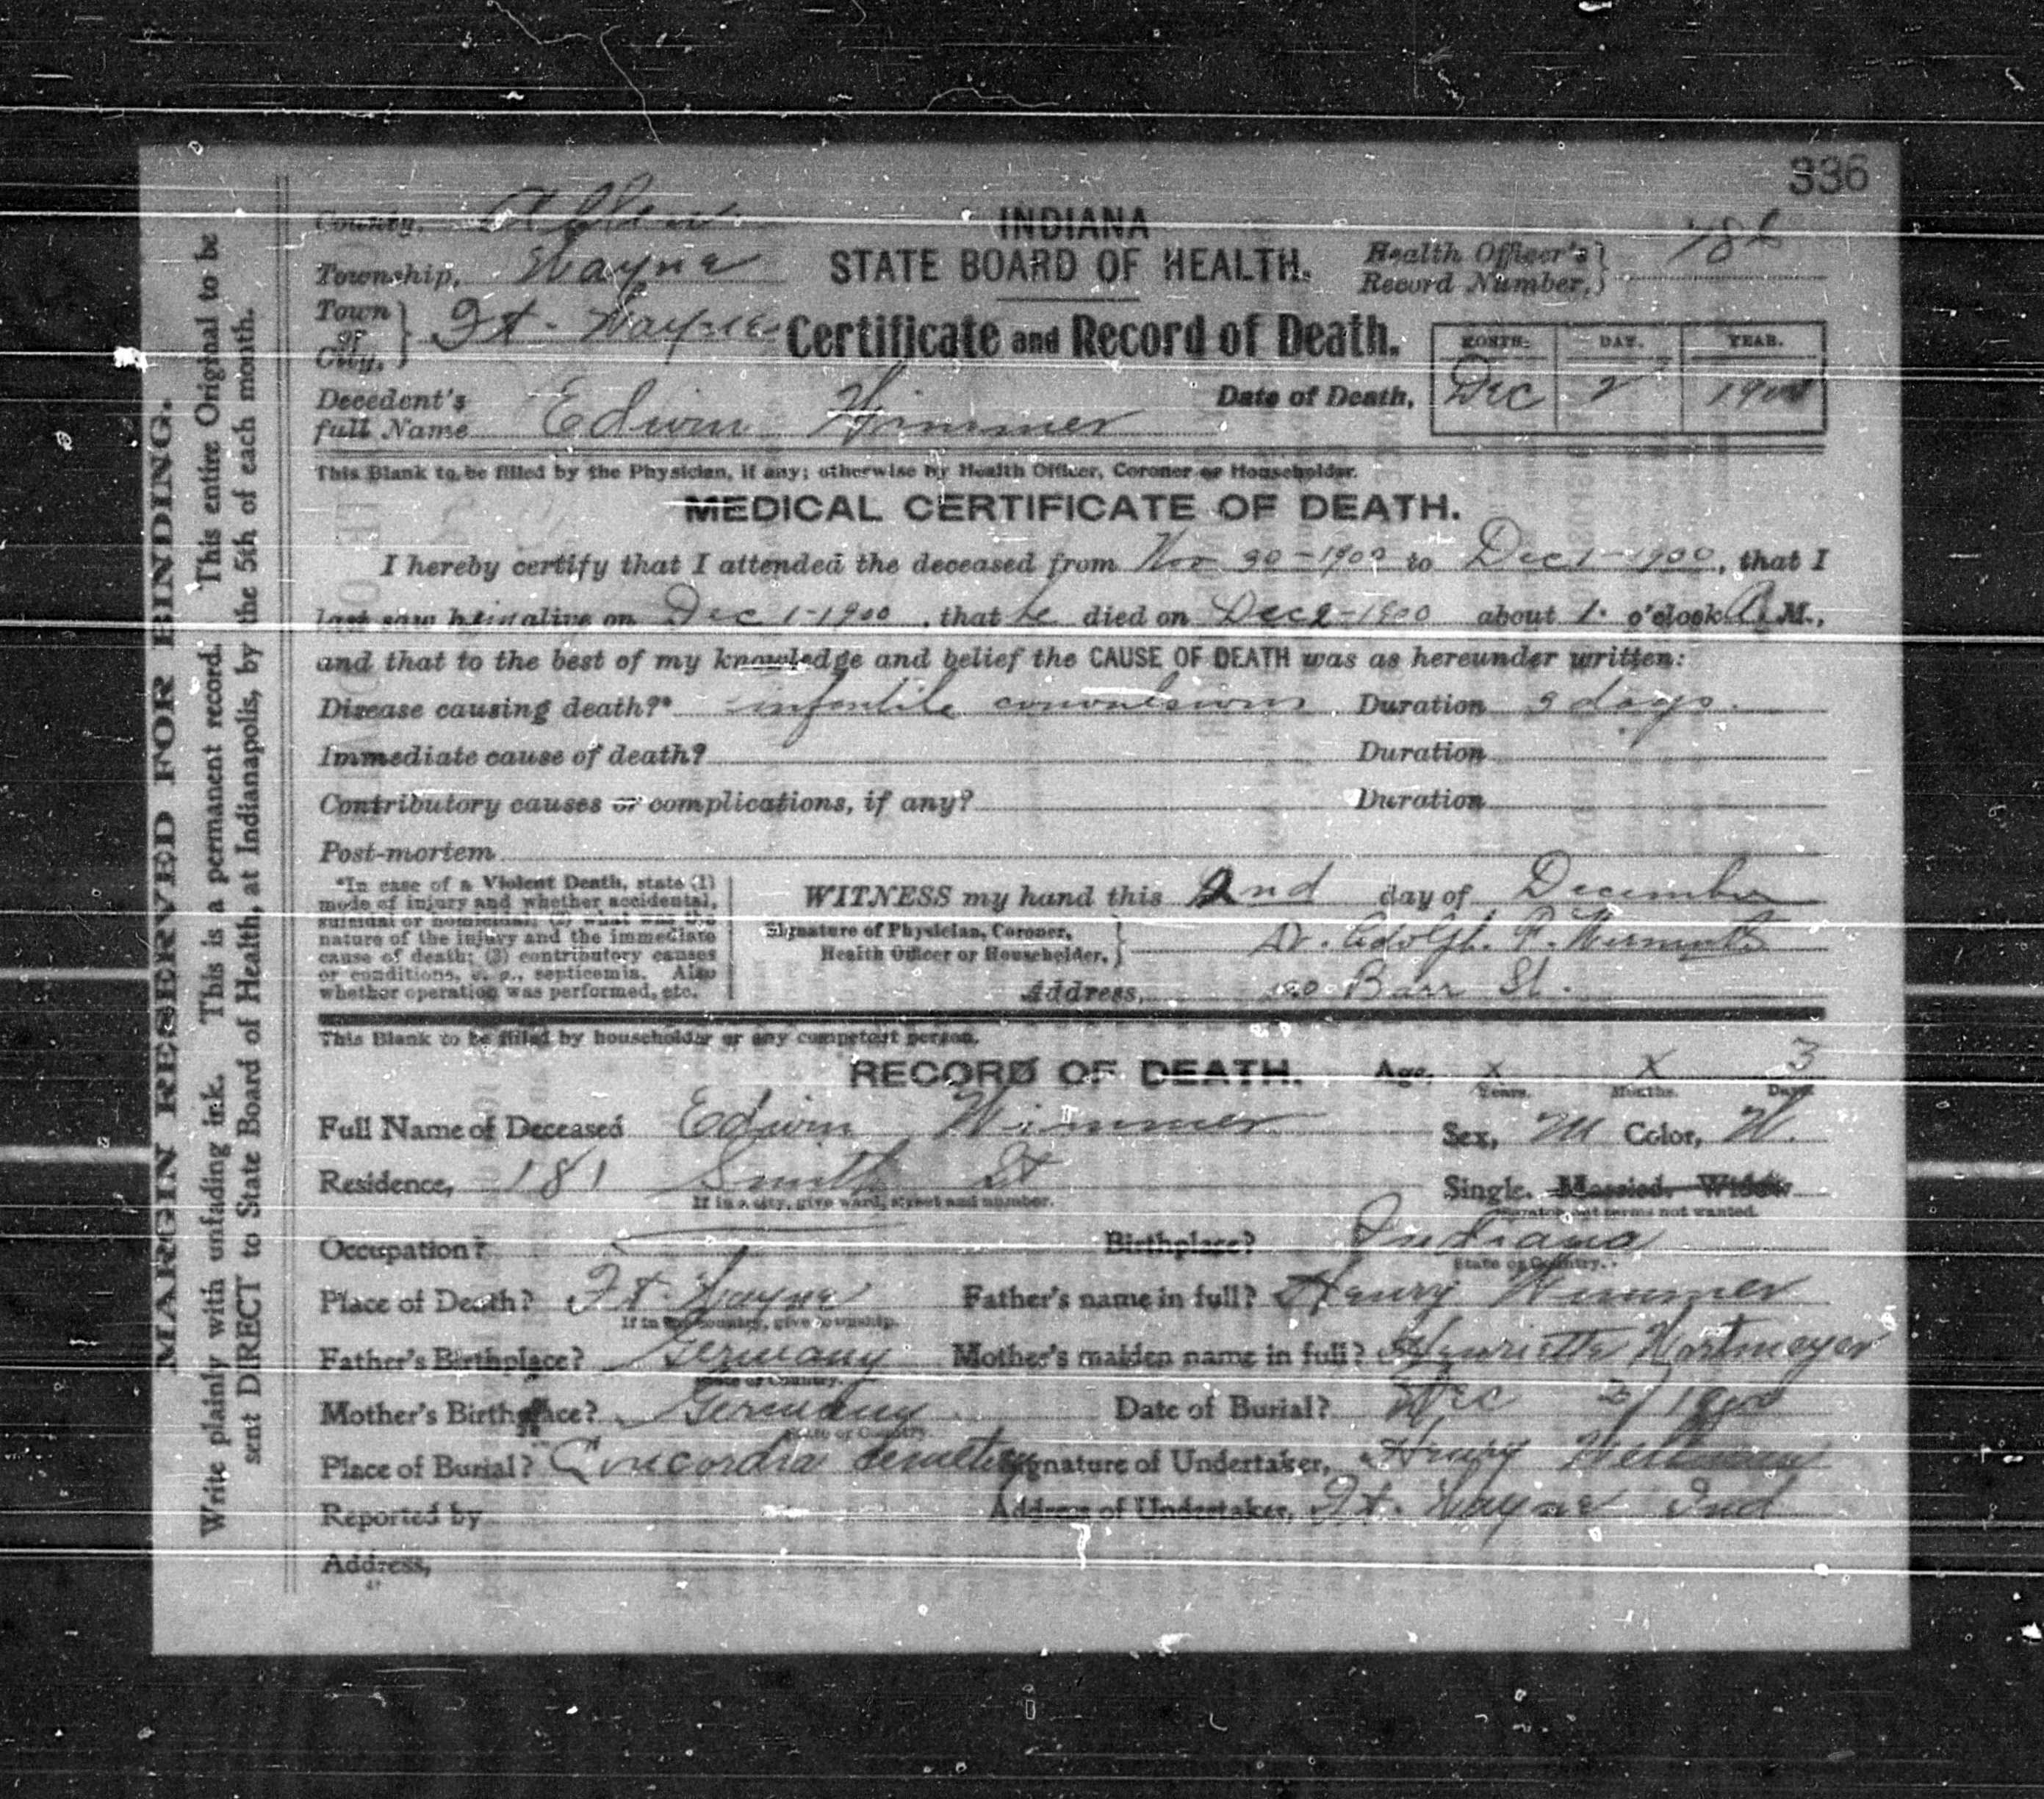 336
County, Allen
INDIANA
Township, Wayne
STATE BOARD OF HEALTH.
Health Officer's
Record Number,
Town
or
City, Ft. Wayne
Certificate and Record of Death.
MONTH. DAY. YEAR.
Decedent's
full Name Edwin Wimmer
Date of Death, Dec 2 1900
This Blank to be filled by the Physician, if any; otherwise by Health Officer, Coroner or Householder.
MEDICAL CERTIFICATE OF DEATH.
I hereby certify that I attended the deceased from Nov 30-1900 to Dec 1-1900, that I
last saw him alive on Dec 1-1900, that he died on Dec 2-1900 about 1 o'clock A M.,
and that to the best of my knowledge and belief the CAUSE OF DEATH was as hereunder written:
Disease causing death?* infantile convulsions Duration 3 days.
Immediate cause of death? Duration
Contributory causes or complications, if any? Duration
Post-mortem
*In case of a Violent Death, state (1)
mode of injury and whether accidental,
suicidal or homicidal; (2) what was the
nature of the injury and the immediate
cause of death; (3) contributory causes
or conditions, e. g., septicemia. Also
whether operation was performed, etc.
WITNESS my hand this 2nd day of December
Signature of Physician, Coroner,
Health Officer or Householder, Dr. Adolph
Address, Barr St.
This Blank to be filled by householder or any competent person.
RECORD OF DEATH. Age, x x 3
Years. Months. Days.
Full Name of Deceased Edwin Wimmer Sex, M Color, W.
Residence, 181 Smith St Single. Married. Widow
If in a city, give ward, street and number. Scratch out terms not wanted.
Occupation? Birthplace? Indiana
State or Country.
Place of Death? Ft. Wayne Father's name in full? Henry Wimmer
If in the country, give township.
Father's Birthplace? Germany Mother's maiden name in full? Henriette Wortmeyer
State or Country.
Mother's Birthplace? Germany Date of Burial? Dec 1900
State or Country.
Place of Burial? Concordia Cemetery Signature of Undertaker, Henry Wellman
Reported by Address of Undertaker, Ft. Wayne Ind
Address,
47
MARGIN RESERVED FOR BINDING.
Write plainly with unfading ink. This is a permanent record. This entire Original to be
sent DIRECT to State Board of Health, at Indianapolis, by the 5th of each month.